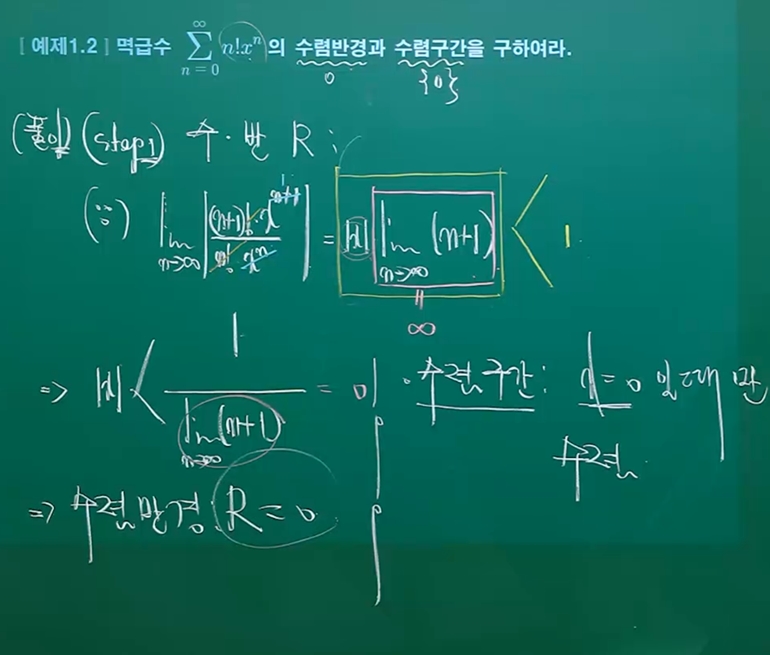 [예제1.2] 멱급수 \sum_{n=0}^{\infty} n!x^n 의 수렴반경과 수렴구간을 구하여라.
0 {0}
(풀이) (step1) 수·반 R :
(∵) \lim_{n→∞} |\frac{(n+1)!·x^{n+1}}{n!·x^n}| = |x| \lim_{n→∞} (n+1) < 1
∞
⇒ |x| < \frac{1}{\lim_{n→∞}(n+1)} = 0
⇒ 수렴반경: R = 0
· 수렴구간: x = 0 일 때만
수렴.